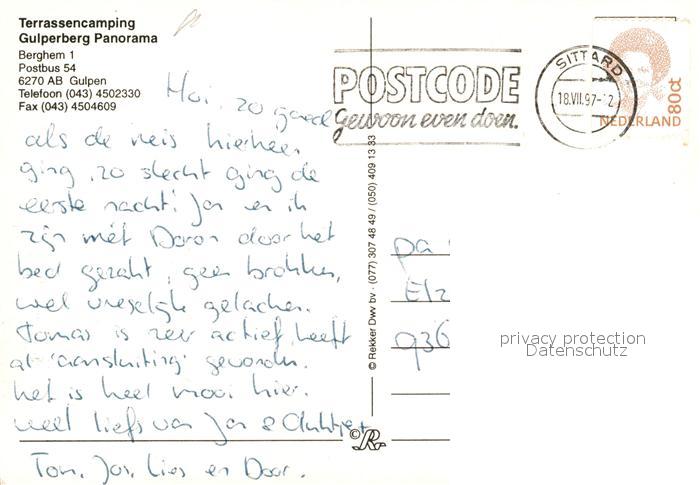 Terrassencamping
Gulperberg Panorama
Berghem 1
Postbus 54
6270 AB Gulpen
Telefoon (043) 4502330
Fax (043) 4504609
POSTCODE
Gewoon even doen.
SITTARD
18.VII.97-12
80ct
NEDERLAND
Hoi, zo goed
als de reis hierheen
ging, zo slecht ging de
eerste nacht! Jan en ik
zijn mét Doron door het
bed gezakt, geen brokken,
wel vreselijk gelachen.
Tomas is zeer actief, heeft
al 'aansluiting' gevonden.
het is heel mooi hier.
veel liefs van Jan &
Tom, Jos, Lies en Door.
© Rekker Dwv bv - (077) 307 48 49 / (050) 409 13 33
© R
pa
Elz
936
privacy protection
Datenschutz